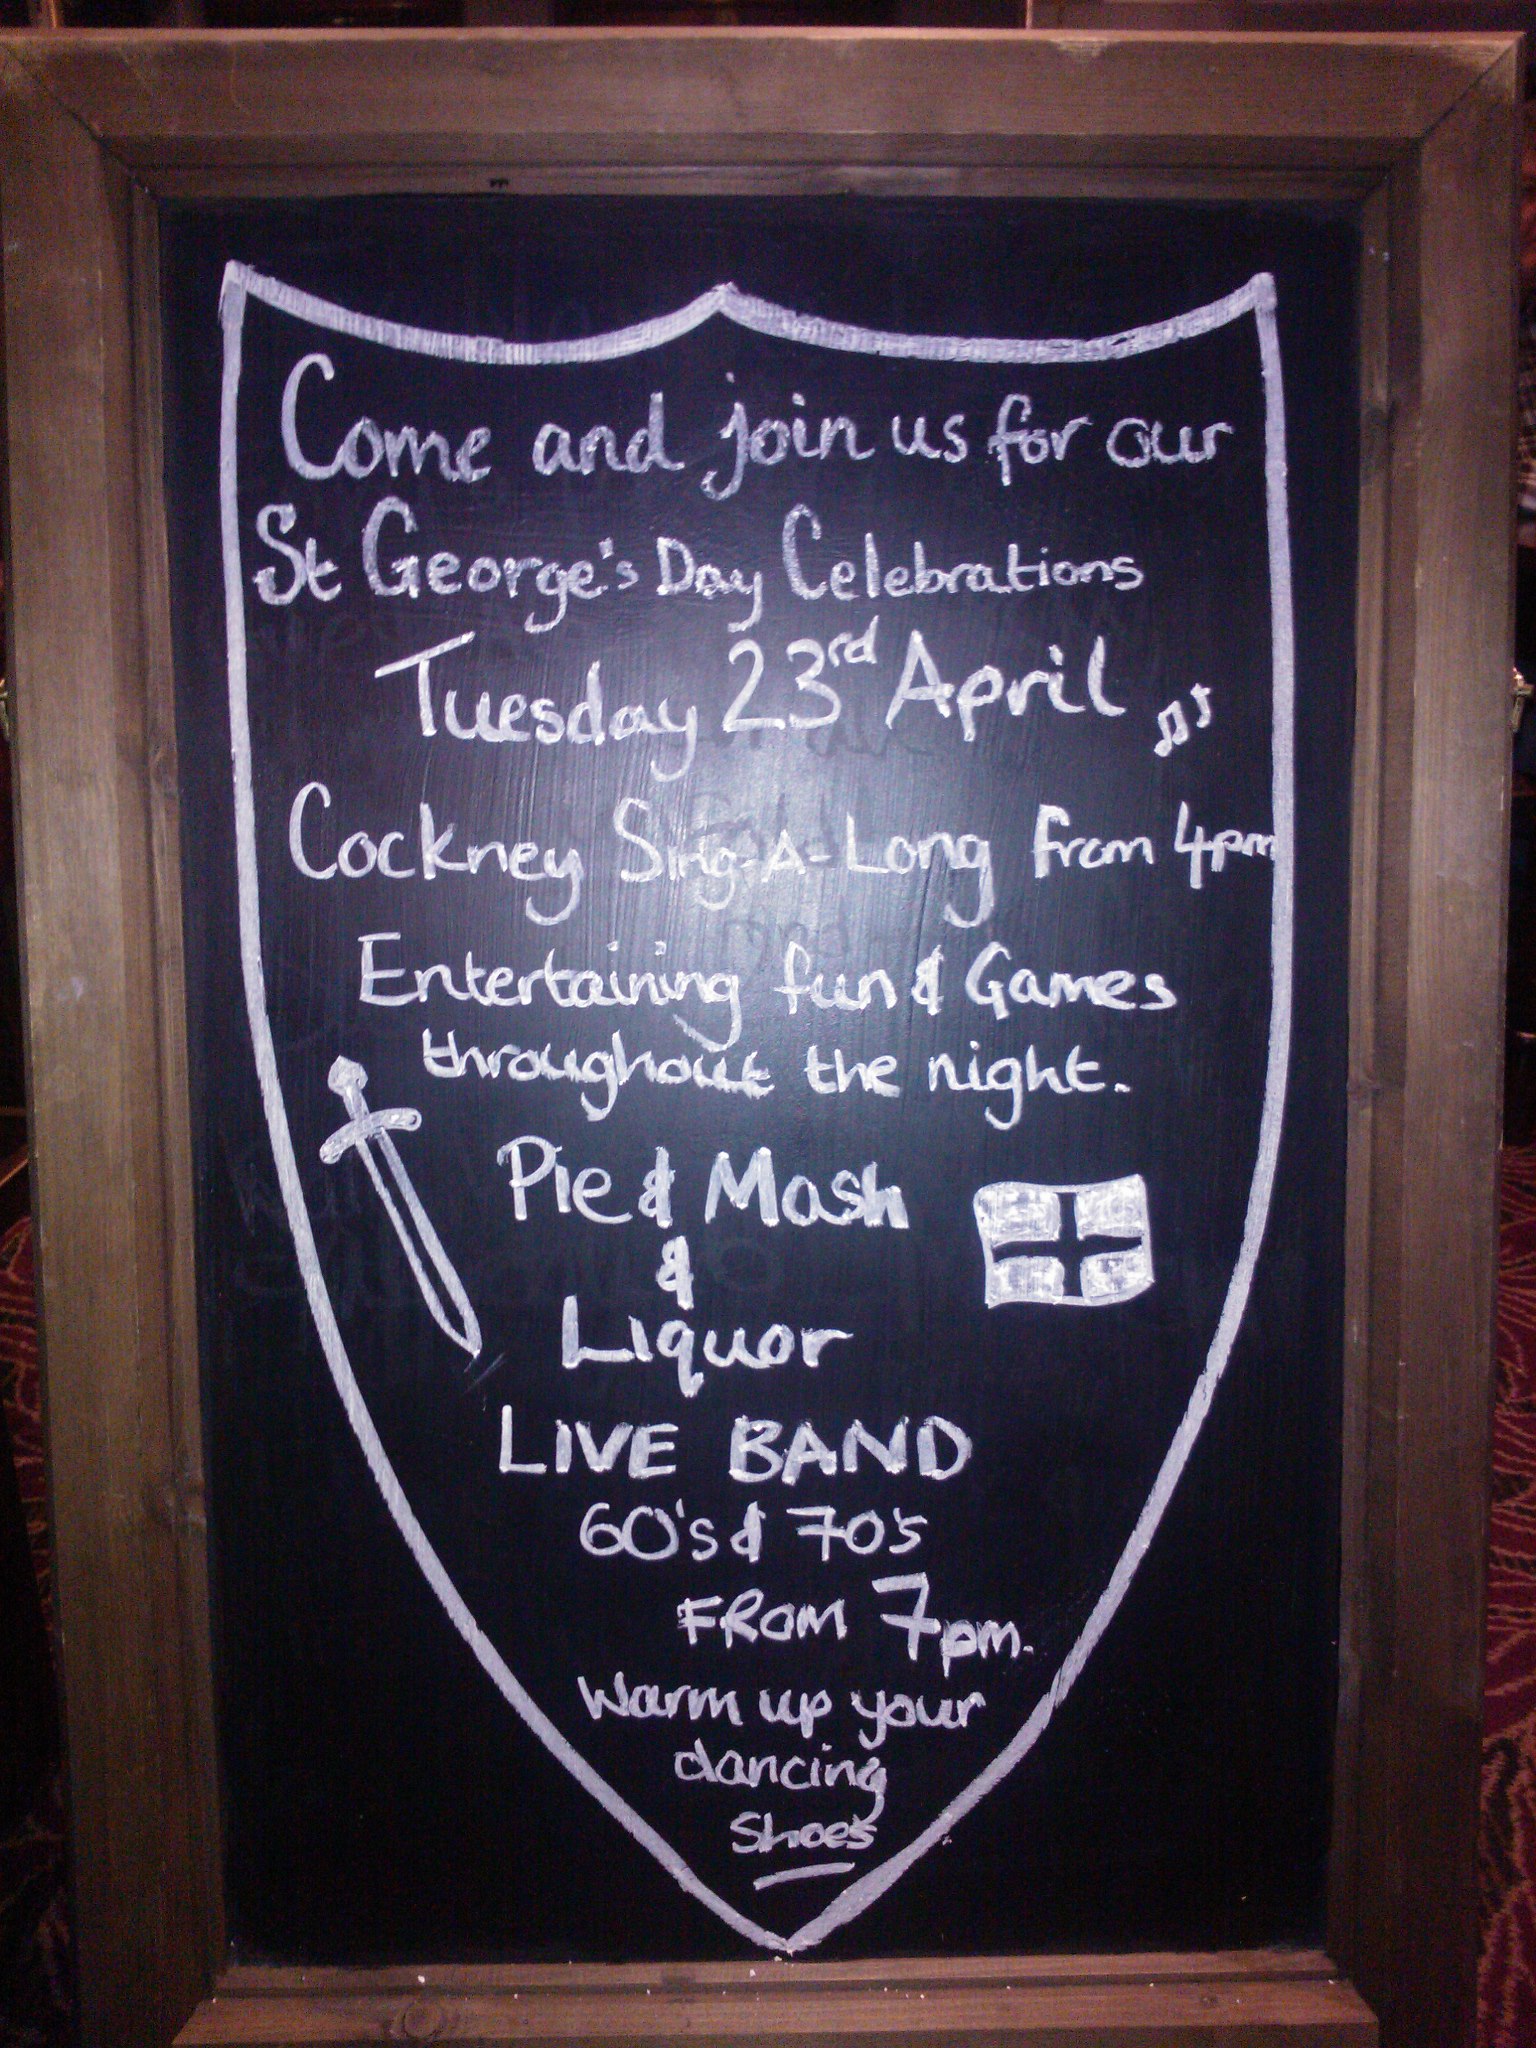 Come and join us for our
St George's Day Celebrations
Tuesday 23rd April
Cockney Sing-A-Long from 4pm
Entertaining fun & Games
throughout the night.
Pie & Mash
&
Liquor
LIVE BAND
60's & 70's
FROM 7pm.
Warm up your
dancing
Shoes